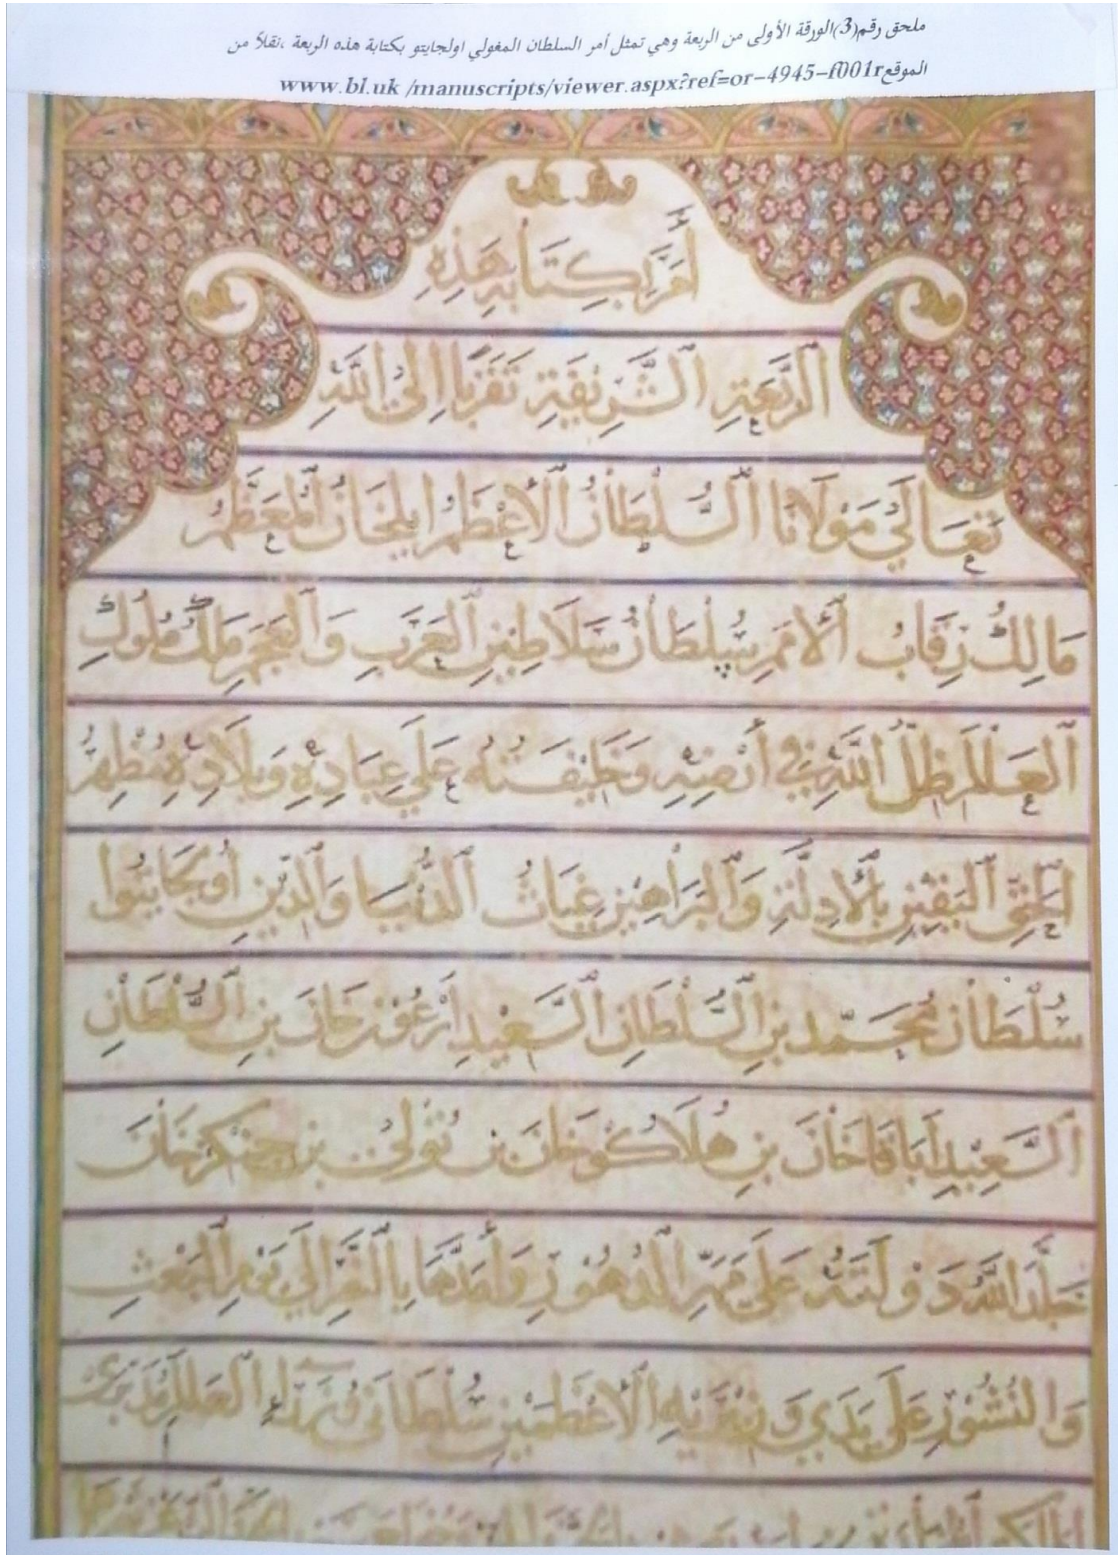 ملحق رقم(3)الورقة الأولى من الربعة وهي تمثل أمر السلطان المغولي اولجايتو بكتابة هذه الربعة ،نقلاً من
الموقعwww.bl.uk /manuscripts/viewer.aspx?ref=or-4945-f001r
أَمَرَ بِكِتَابَةِ هَذِهِ
الرَّبْعَةِ الشَّرِيفَةِ تَقَرُّبًا إِلَى اللَّهِ
تَعَالَى مَوْلَانَا السُّلْطَانُ الْأَعْظَمُ ايلخَانُ الْمُعَظَّمُ
مَالِكُ رِقَابُ الْأُمَمِ سُلْطَانُ سَلَاطِينِ الْعَرَبِ وَالْعَجَمِ مَلِكُ مُلُوكِ
الْعَالَمِ ظِلُّ اللَّهِ فِي أَرْضِهِ وَخَلِيفَتُهُ عَلَى عِبَادِهِ وَبِلَادِهِ مُظْهِرُ
الْحَقِّ الْيَقِينِ بِالْأَدِلَّةِ وَالْبَرَاهِينِ غِيَاثُ الدُّنْيَا وَالدِّينِ أُولجَايتُوا
سُلْطَان مُحَمَّد بنِ السُّلْطَانِ السَّعِيدِ أَرْغُون خَان بنِ السُّلْطَانِ
السَّعِيدِ أَبَاقَا خَان بنِ هُلَاكُو خَان بن تُولِي بن جِنكِز خَان
خَلَّدَ اللَّهُ دَوْلَتَهُ عَلَى مَمَرِّ الدُّهُورِ وَأَمَدَّهَا بِالْعِزِّ إِلَى يَوْمِ الْبَعْثِ
وَالنُّشُورِ عَلَى يَدَي وَزِيرَيْهِ الْأَعْظَمَيْنِ سُلْطَانَي وُزَرَاءِ الْعَالَمِ